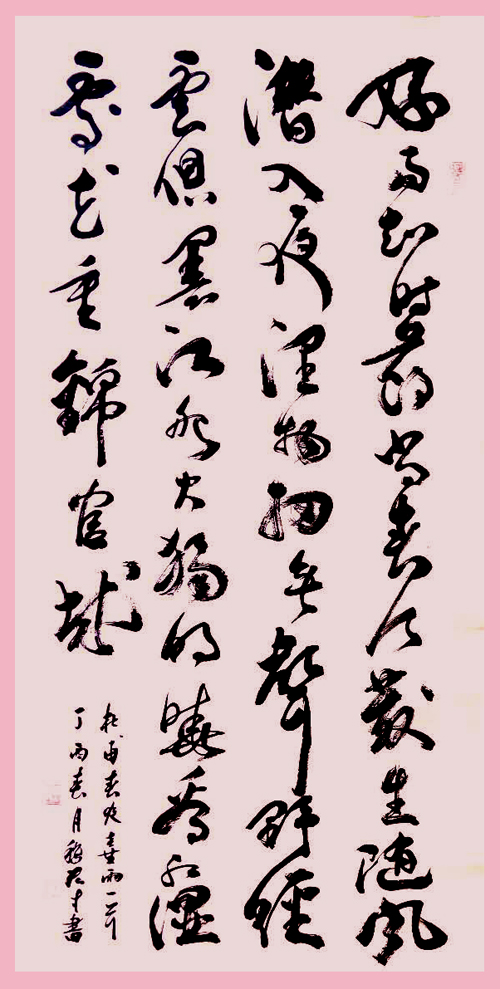 好雨知時節當春乃發生随風
潛入夜潤物細無聲野徑
雲俱黑江船火獨明曉看紅濕
處花重錦官城
杜甫春夜喜雨一首
丁酉春月書